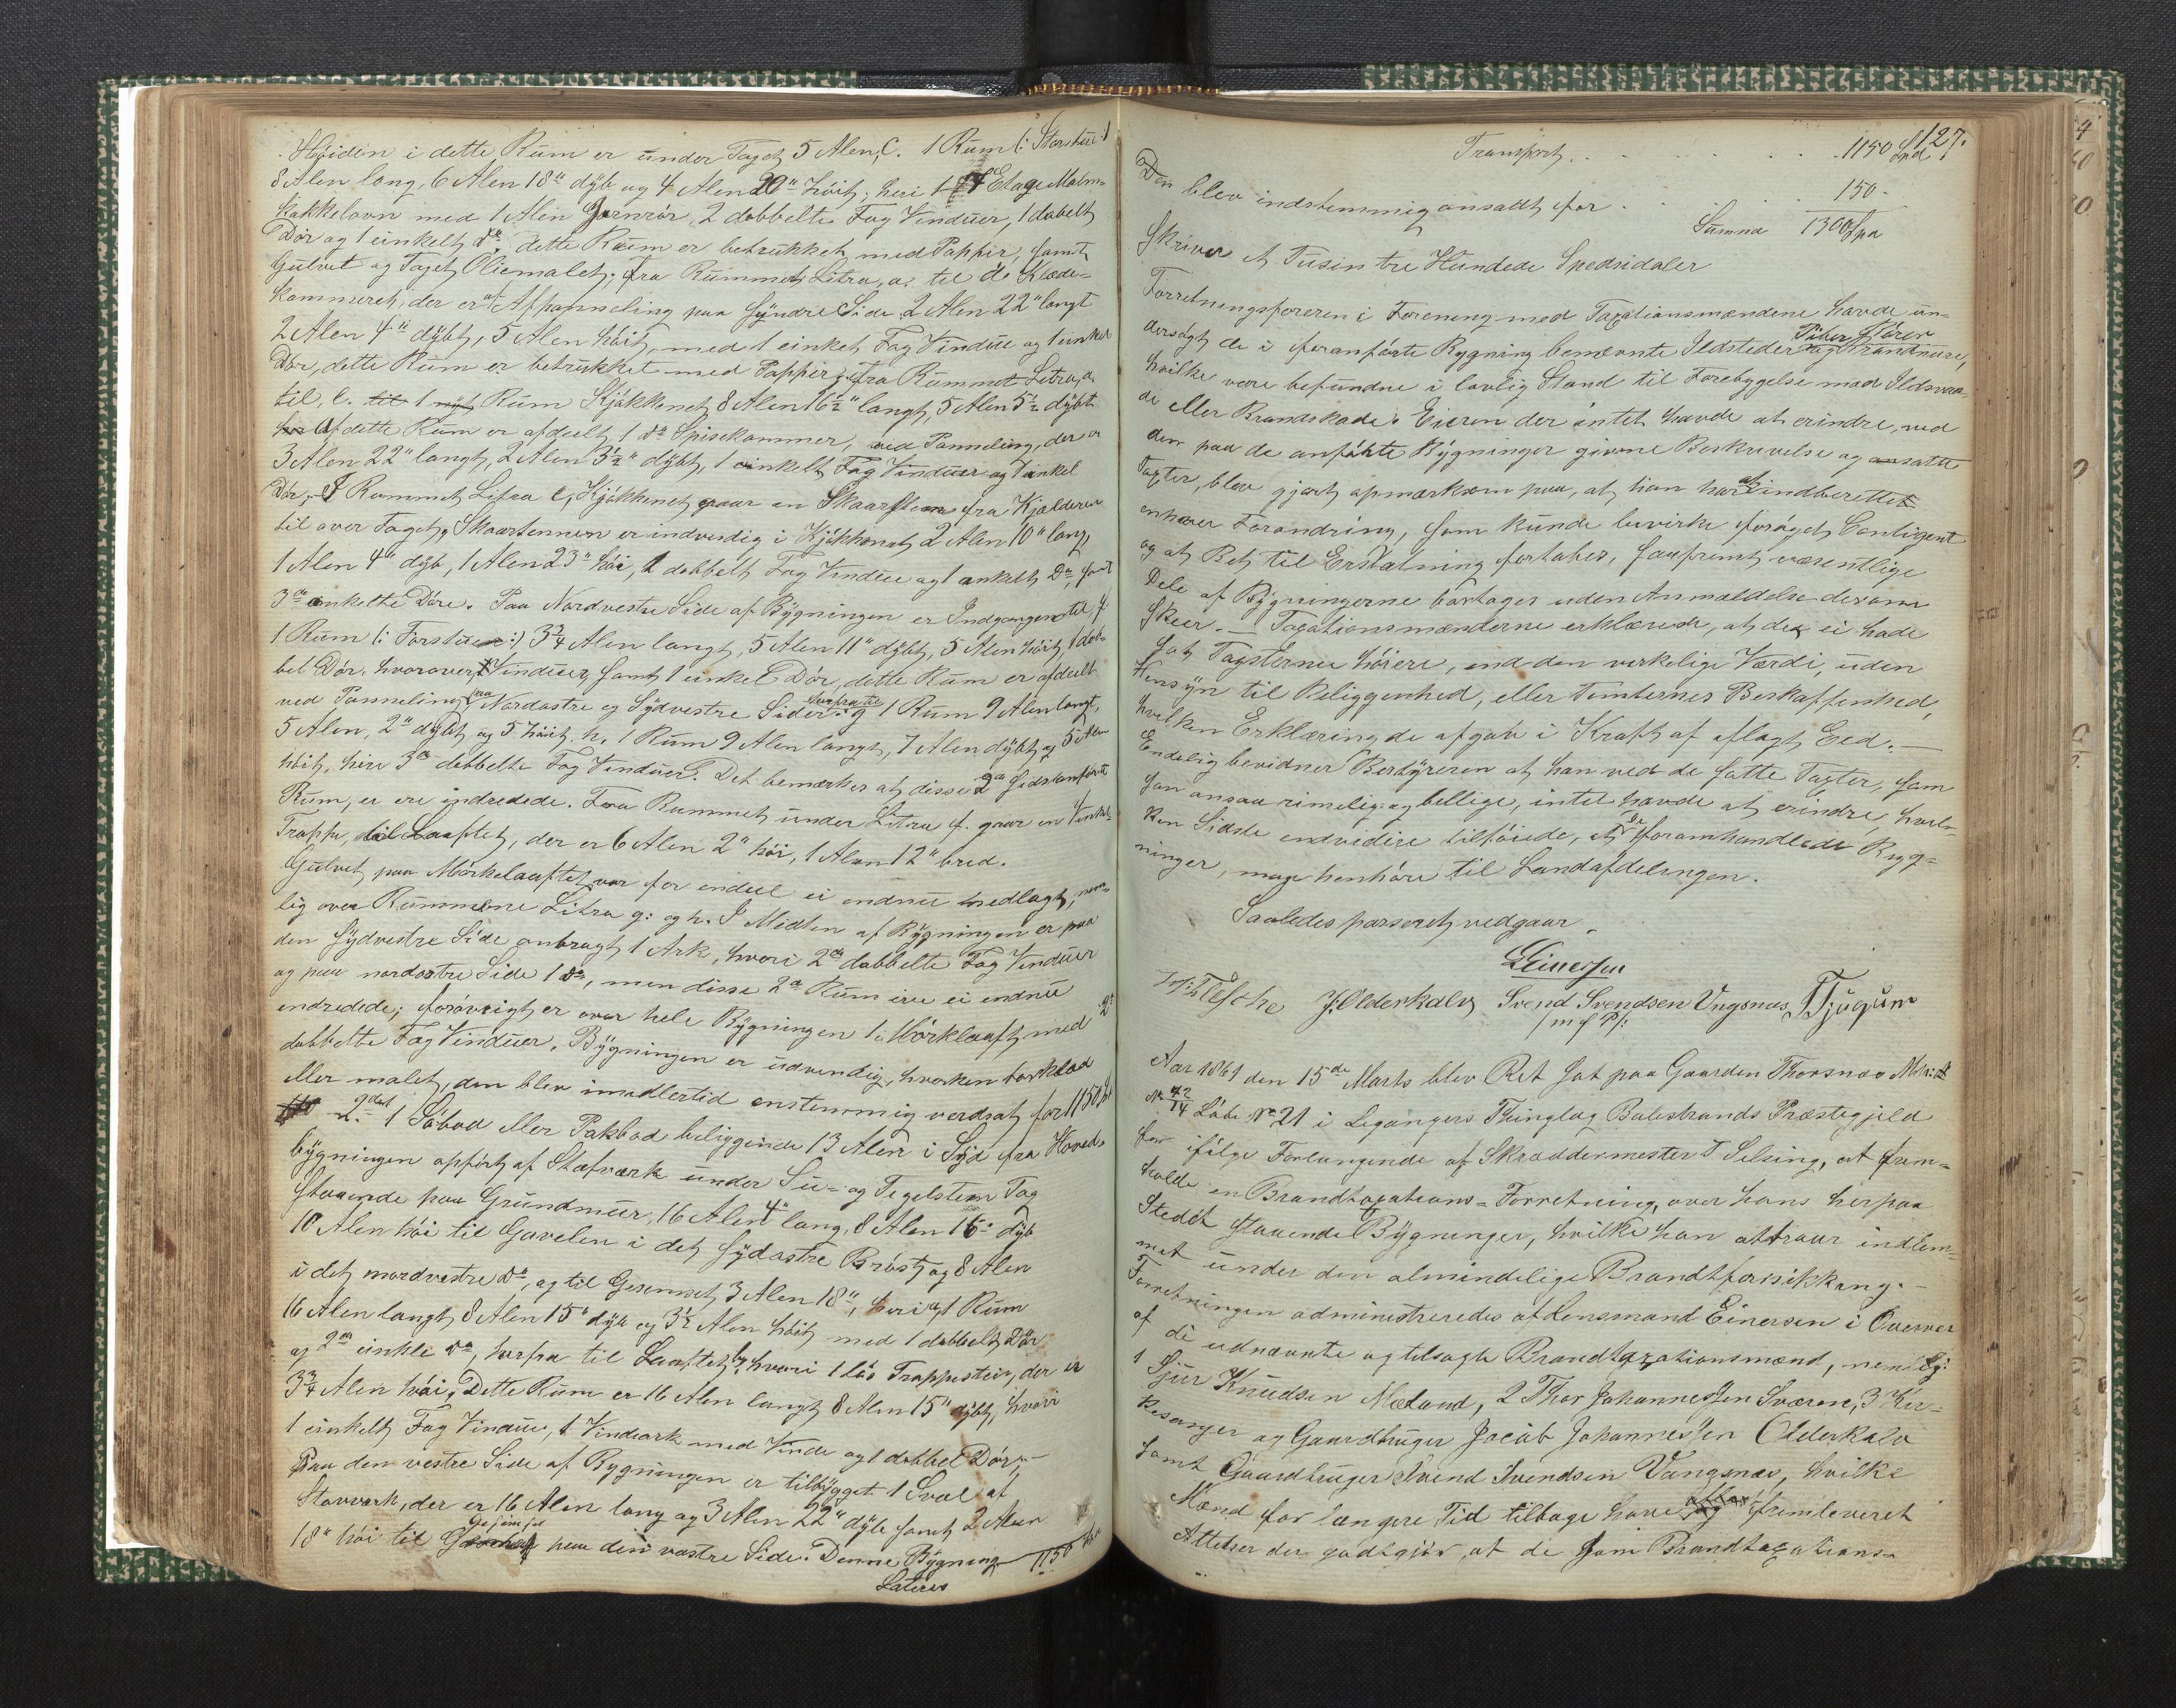 Høiden i dette Rum er under Taget 5 Alen, C. 1 Rum (: Storstue :)
8 Alen lang, 6 Alen 18" dyb og 4 Alen 20" høit; heri 1 Etage Malm-
kakkelovn med 1 Alen Jernrør, 2 dobbelte Fag Vinduer, 1 dobelt
Dør og 1 einkelt do. dette Rum er betrukket med Pappir, samt
Gulvet og Taget Oliemalet; fra Rummet Litra, a. til d. Klæde-
kammeret, der er Afpanneling paa Syndre Side 2 Alen 22" langt
2 Alen 4" dybt, 5 Alen høit, med 1 einket Fag Vindue og 1 einkel
Dør, dette Rum er betrukket med Pappir; fra Rummet Litra, a.
til, e. 1 Rum Kjøkkenet 8 Alen 16½" langt, 5 Alen 5½ dybt
Af dette Rum er afdeelt 1 do Spisekammer, ved Panneling, der er
3 Alen 22" langt, 2 Alen 3½" dybt, 1 einkelt Fag Vinduer og 1 einkel
Dør, I Rummet Litra e, Kjøkkenet gaar en Skaarsteen fra Kjælderen
til over Taget, Skaarstennen er indvendig i Kjøkkenet 2 Alen 10" lang,
1 Alen 4" dyb, 1 Alen 23" høi, 1 dobbelt Fag Vindue og 1 enkelt Do, samt
3de enkelte Døre. Paa Nordvestre Side af Bygningen er Indgangen til f.
1 Rum (: Forstuen :) 3¾ Alen langt, 5 Alen 11" dybt, 5 Alen høit, 1 dob-
bel Dør, hvorover Vinduer, samt 1 einkel Dør, dette Rum er afdeelt
ved Panneling paa Nordostre og Sydvestre Sider: g 1 Rum 9 Alen langt,
5 Alen, 2" dybt og 5 høit, h. 1 Rum 9 Alen langt, 7 Alen dybt og 5 Alen
høit, hiri 3de dobbelte Fag Vinduer. Det bemærkes at disse 2de sidstanførte
Rum, er ere indredede. Fra Rummet under Litra f. gaar en Vinkel-
Trappe, til Laaftet, der er 6 Alen 2" høi, 1 Alen 12" bred.
Gulvet paa Mørkelaaftet var for endeel ei endnu nedlagt, nem-
lig over Rummene Litra g: og h. I Midten af Bygningen er paa
den Sydvestre Side anbragt 1 Ark, hvori 2de dobbelte Fag Vinduer
og paa nordostre Side 1 do, men disse 2de Rum ere ei endnu
endredede; forøvrigt er over hele Bygningen 1 Mørklaaft med 2de
dobbelte Fag Vinduer. Bygningen er udvendig hverken bordklad
eller malet, den blev imidlertid enstemmig verdsat for 1150
2det 1 Søbod eller Pakbod beliggende 13 Alen i Syd fra Hoved-
bygningen opført af Stafværk under Su- og Tegelsteen Tag
staaende paa Grundmuur, 16 Alen 4" lang, 8 Alen 16" dyb
10 Alen høi til Gavelen i det sydostre Brøst, og 8 Alen
i det nordvestre do, og til Gesemset 3 Alen 18", heri a, 1 Rum
16 Alen langt 8 Alen 15" dyb og 3½ Alen høit, med 1 dobbelt Dør
og 2de einkle do, herfra til Laaftet b, hvori 1 løs Trappesteie, der er
3¾ Alen høi, Dette Rum er 16 Alen langt 8 Alen 15" dybt, hvori
1 einkelt Fag Vindue, 1 Vindeark med Vinde og 1 dobbel Dør,
Paa den vestre Side af Bygningen er tilbygget 1 Sval af
Stavverk, der er 16 Alen lang og 3 Alen 22" dyb samt 2 Alen
18" høi til Gesimset paa den vestre Side. Denne Bygning
Lateris 1150
127.
Transport . . . . . . 1150 Spd
Den blev indstemmig ansatt for . . . . 150 -
Summa 1300 Spd
Skriver et Tusin tre Hundede Spedsidaler
Forretningsføreren i Forening med Taxationsmændene havde un-
dersøgt de i foranførte Bygning benævnte Ildsteder Piber Rører og Brandmure,
hvilke vare befundne i lovlig Stand til Forebyggelse mod Ildsvaa-
de eller Brandskade. Eieren der intet havde at erindre, ved
den paa de anførte Bygninger givene Beskrivelse og ansatte
Taxter, blev gjort opmærksom paa, at han har at indberette
enhver Forandring, som kunde bevirke forøget Contigent
og at Ret til Erstatning fortabes, saafremt væsentlige
Dele af Bygningerne bortages uden Anmældelse derom
skeer. — Taxationsmænderne erklærede, at de ei hade
sat Taxterne høiere, end den verkelige Værdi, uden
Hensyn til Beliggenhed, eller Tomternes Beskaffenhed,
hvilken Erklæring de afgav i Kraft af aflagt Eed. —
Endelig bevidner Bestyreren at han ved de satte Taxter, som
han ansaa rimelig og bellige, intet havde at erindre, hvil-
ken Sidste endvidere tilføiede, at de foromhandlede Byg-
ninger, maa henhøre til Landafdelingen.
Saaledes passeret, vedgaar.
LEinersen
Tesche J. Olderkalv Svend Svendsen Vngsnæs TTjugum
/ m f P /:
Aar 1861 den 15de Marts blev Ret sat paa Gaarden Thorsnæs Matrik
No 42/14 Løbe No 21 i Legangers Thinglag Balestrands Præstegjeld
for ifølge Forlangende af Skræddermester T Selsing, at frem-
holde en Brandtaxations-Forretning, over hans herpaa
Stedet staaende Bygninger, hvilke han attraar indlem-
met under den almindelige Brandtforsikkring. —
Forretningen administreredes af Lensmand Einersen i Overvær
af de udnævnte og tilsagte Brandtaxationsmænd, nemlig:
1 Sjur Knudsen Mæland, 2 Thor Johannessen Sværen, 3 Kir-
kesanger og Gaardbruger Jacob Johannessen Olderkalv
samt Gaardbruger Svend Svendsen Vangsnæs, hvilke
Mænd for længere Tid tilbage have fremleveret
Attelser der godtgjør, at de som Brandtaxations-